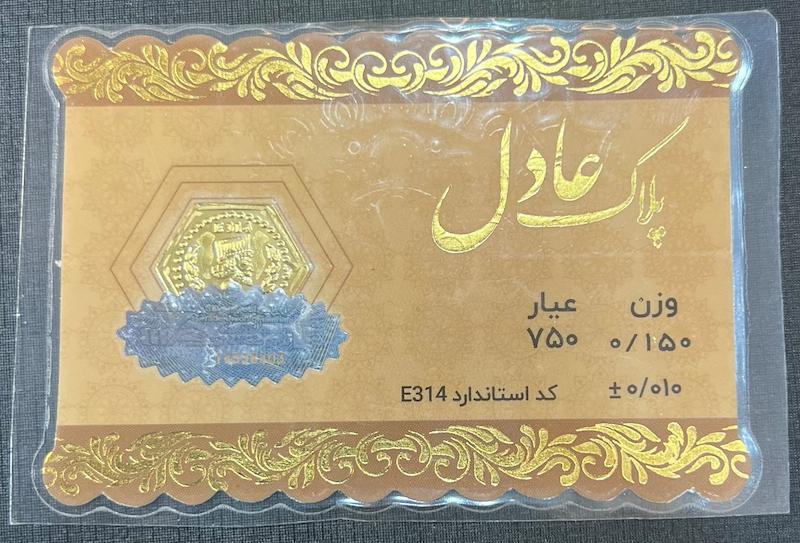 پلاک عادل
وزن عیار
۰/۱۵۰ ۷۵۰
±۰/۰۱۰ کد استاندارد E314